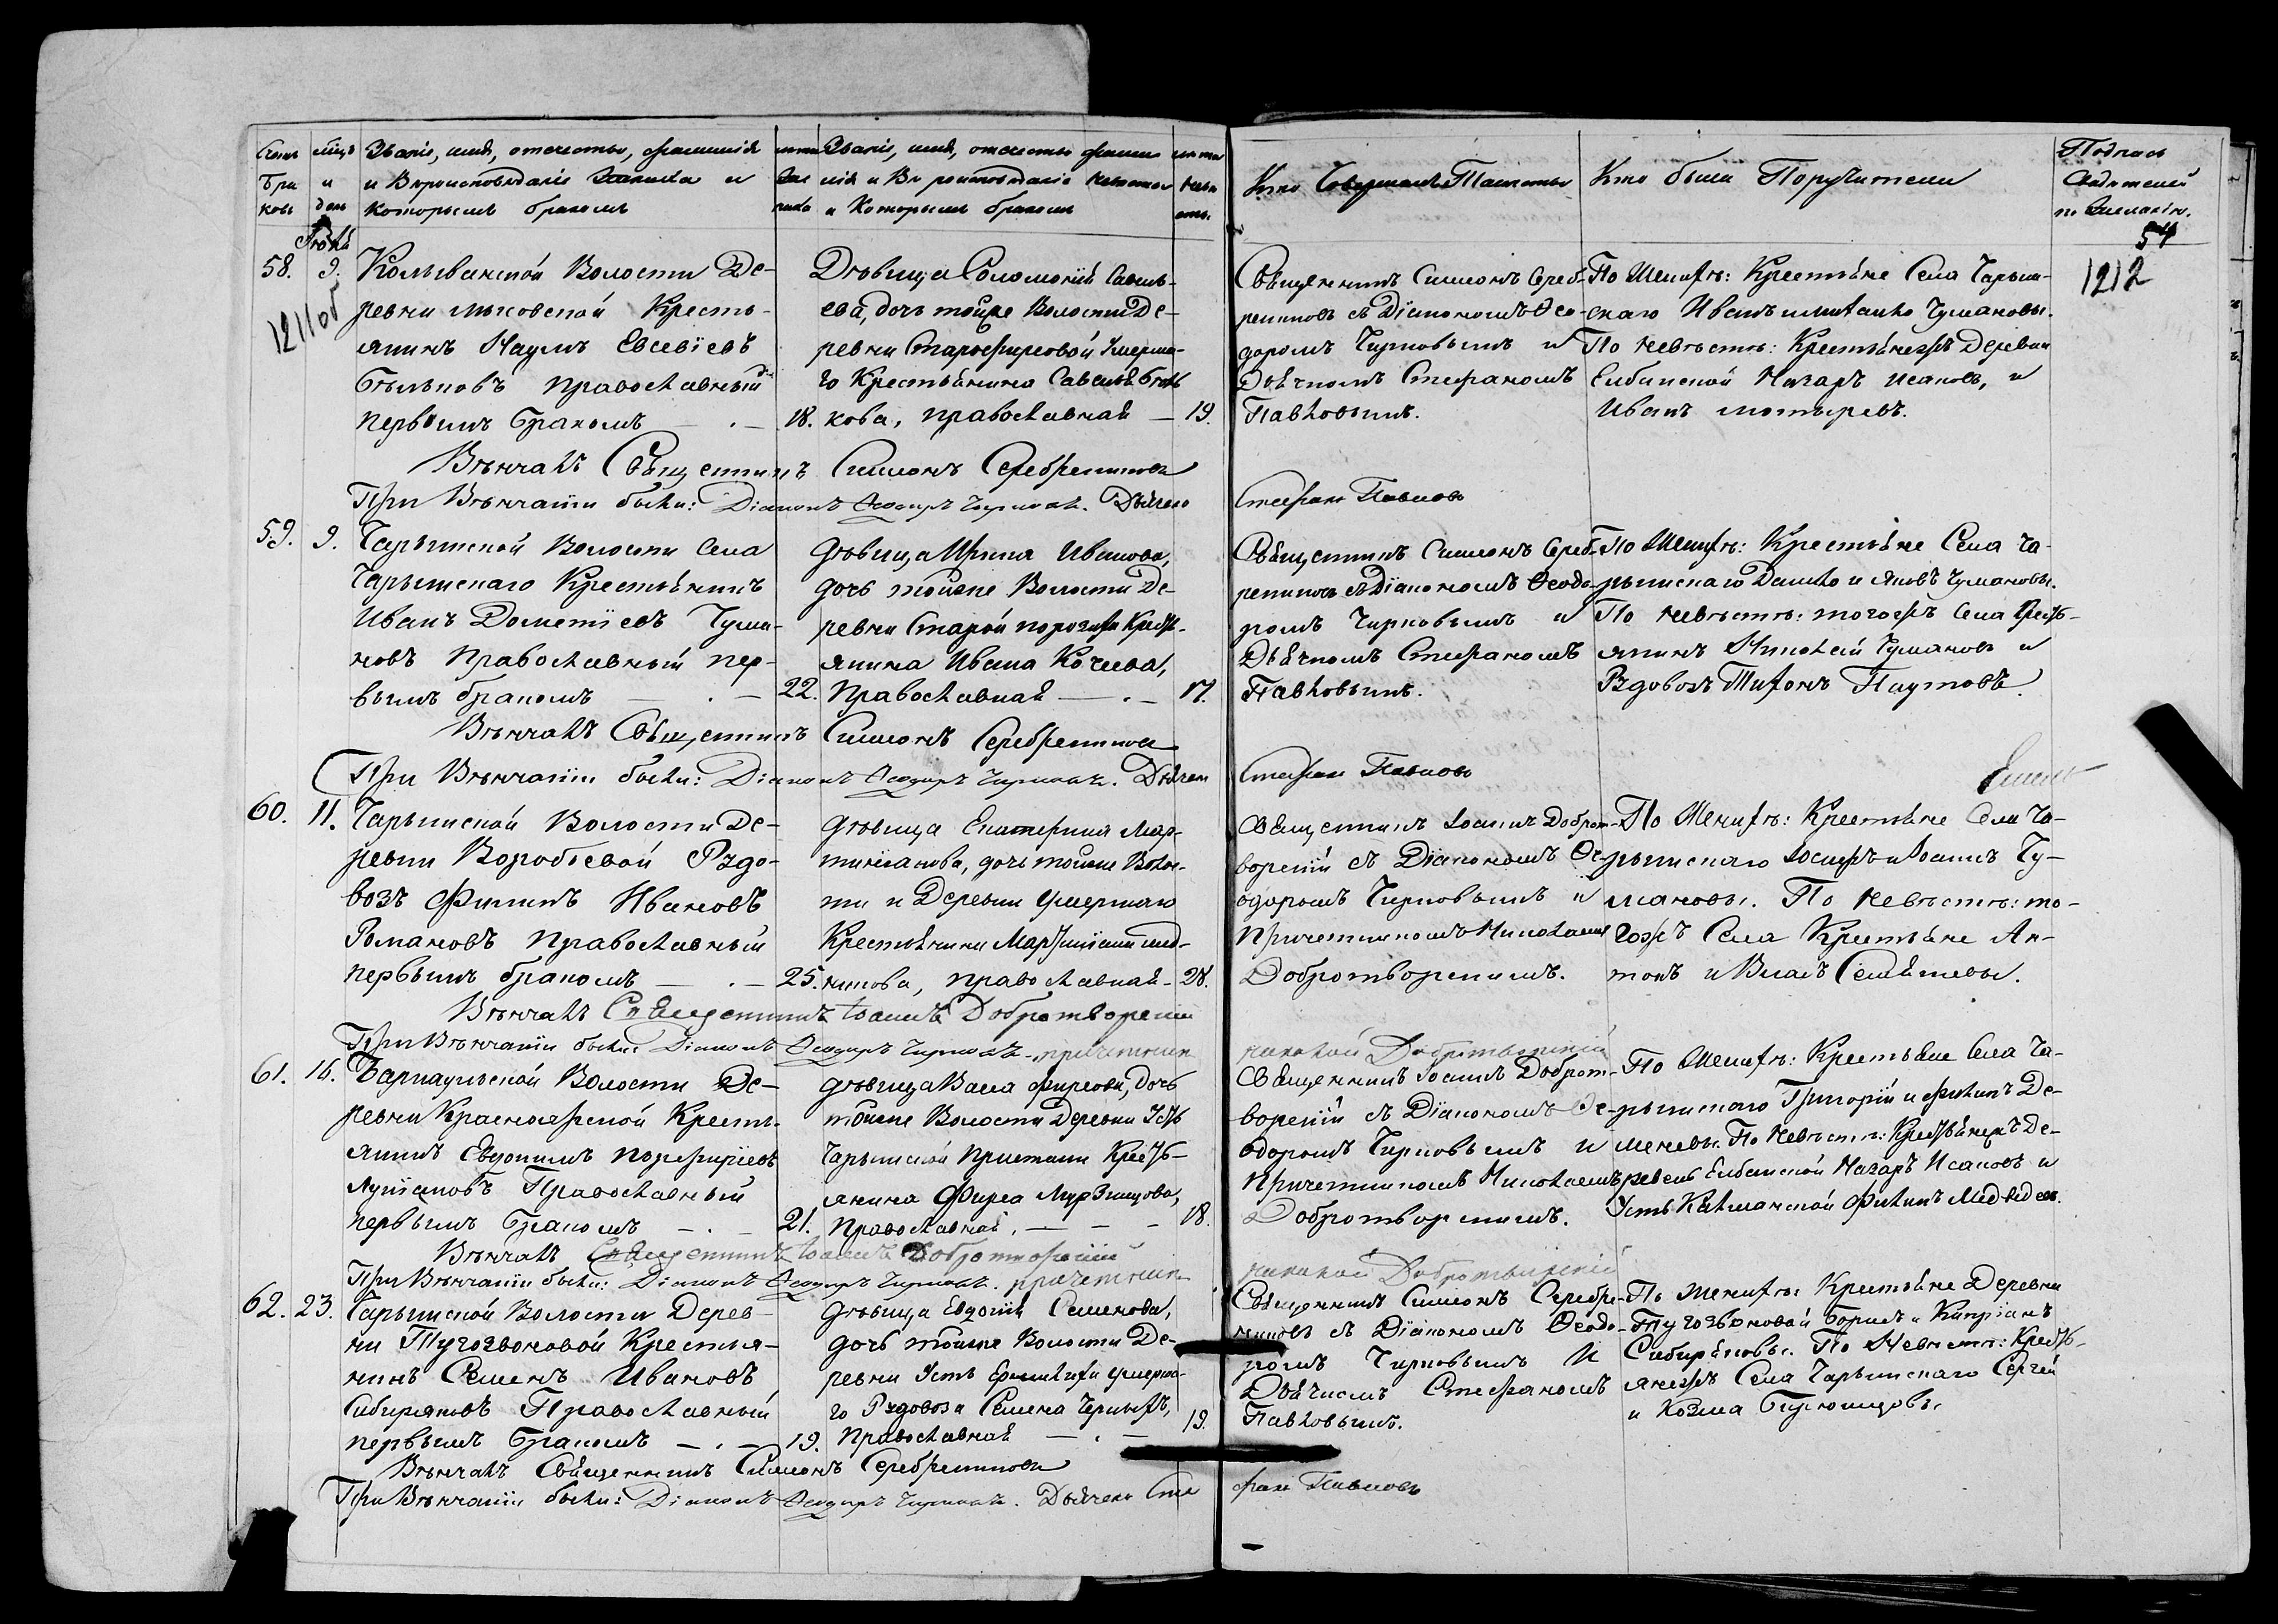 Званіе, имя, отечество, фамилія
и Вѣроисповѣданіе Жениха и
Которымъ бракомъ
Званіе, имя, отечество фами-
лія и Вѣроисповѣданіе Невесты
и Которымъ бракомъ
Кто Совершалъ Таинство
Кто были Поручители
Подпись
Свидѣтелей
по Желанію.
54
1212
58.
9.
Колыванской Волости Де-
ревни Кресть-
янинъ Наумъ Евсевіевъ
православный
первымъ бракомъ
18.
Дѣвица Соломонія Савель-
ева, дочь тойже Волости Де-
ревни умерша-
го Крестьянина Савелья
кова, православная
19.
Священникъ Симеонъ Сереб-
рениковъ съ Діакономъ Ѳео-
доромъ Чирковымъ и
Дьячкомъ Стефаномъ
Павловымъ.
По Женихѣ: Крестьяне Села Чарыш-
скаго Иванъ и Чумаковы.
По Невѣстѣ: Крестьянежъ Деревни
Елбанской Назаръ Исаковъ, и
Иванъ
Вѣнчалъ Священникъ Симеонъ Серебрениковъ
При Вѣнчаніи были: Діаконъ Ѳеодоръ Чирковъ. Дьячекъ
Стефанъ Павловъ
59.
9.
Чарышской Волости Села
Чарышскаго Крестьянинъ
Иванъ Дометіевъ Чума-
ковъ православный пер-
вымъ бракомъ
22.
Дѣвица Ирина Иванова,
дочь тойже Волости Де-
ревни Старой Кресть-
янина Ивана Кочева,
Православная
17.
Священникъ Симеонъ Сереб-
рениковъ съ Діакономъ Ѳеодо-
ромъ Чирковымъ и
Дьячкомъ Стефаномъ
Павловымъ.
По Женихѣ: Крестьяне Села Ча-
рышскаго и Яковъ Чумаковы.
По Невѣстѣ: тогожъ Села Кресть-
янинъ Николай Чумаковъ и
Рздовозъ Тихонъ Паутовъ.
Вѣнчалъ Священникъ Симеонъ Серебрениковъ
При Вѣнчаніи были: Діаконъ Ѳеодоръ Чирковъ. Дьячекъ
Стефанъ Павловъ
60.
11.
Чарышской Волости Де-
ревни Воробьевой Рздо-
возъ Филипъ Ивановъ
Романовъ православный
первымъ бракомъ
25.
Дѣвица Екатерина Мар-
тиніанова, дочь тойже Волос-
ти и Деревни умершаго
Крестьянина Мартиніана
православная
28.
Священникъ Іоаннъ Доброт-
ворскій съ Діакономъ Ѳе-
одоромъ Чирковымъ и
Причетникомъ Николаемъ
Добротворскимъ.
По Женихѣ: Крестьяне Села Ча-
рышскаго Іосифъ и Іоаннъ Чу-
маковы. По Невѣстѣ: то-
гожъ Села Крестьяне Ан-
тонъ и Власъ
Вѣнчалъ Священникъ Іоаннъ Добротворскій
При Вѣнчаніи были: Діаконъ Ѳеодоръ Чирковъ. причетникъ
николай Добротворскій
61.
16.
Барнаульской Волости Де-
ревни Красноярской Кресть-
янинъ Евдокимъ Порфиріевъ
Православный
первымъ бракомъ
21.
Дѣвица Васса Фирсова, дочь
тойже Волости Деревни Усть
Чарышской Пристани Кресть-
янина Фирса
Православная.
18.
Священникъ Іоаннъ Доброт-
ворскій съ Діакономъ Ѳе-
одоромъ Чирковымъ и
Причетникомъ Николаемъ
Добротворскимъ.
По Женихѣ: Крестьяне Села Ча-
рышскаго Григорій и Филипъ Де-
меневы. По Невѣстѣ: Крестьянежъ Де-
ревень Елбанской Назаръ Исаковъ и
Усть Калманской Филипъ Медведевъ.
Вѣнчалъ Священникъ Іоаннъ Добротворскій
При Вѣнчаніи были: Діаконъ Ѳеодоръ Чирковъ. причетникъ
николай Добротворскій
62.
23.
Чарышской Волости Дерев-
ни Тугозвоновой Крестья-
нинъ Семенъ Ивановъ
Сибиряковъ Православный
первымъ бракомъ
19.
Дѣвица Евдокія Семенова,
дочь тойже Волости Де-
ревни Усть умерша-
го Рздовоза Семена Черныхъ,
Православная
19.
Священникъ Симеонъ Серебре-
никовъ съ Діакономъ Ѳеодо-
ромъ Чирковымъ и
Дьячкомъ Стефаномъ
Павловымъ.
По Женихѣ: Крестьяне Деревни
Тугозвоновой Борисъ и Кипріанъ
Сибиряковы. По Невѣстѣ: Кресть-
янежъ Села Чарышскаго Сергей
и Козма
Вѣнчалъ Священникъ Симеонъ Серебрениковъ
При Вѣнчаніи были: Діаконъ Ѳеодоръ Чирковъ. Дьячекъ Сте
фанъ Павловъ